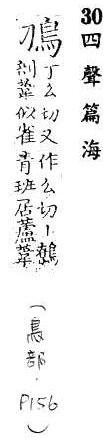 30 四聲篇海
鳭 丁么切又作么切丨鷯
剖葦似雀青班居蘆葦
（鳥部．P156）